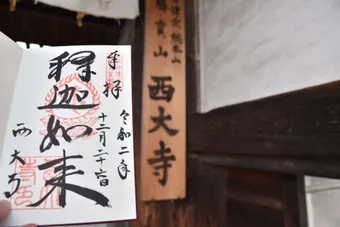 奉拝
令和二年
十二月二十六日
釋迦如来
西大寺
真言律宗 総本山
勝寳山
西大寺